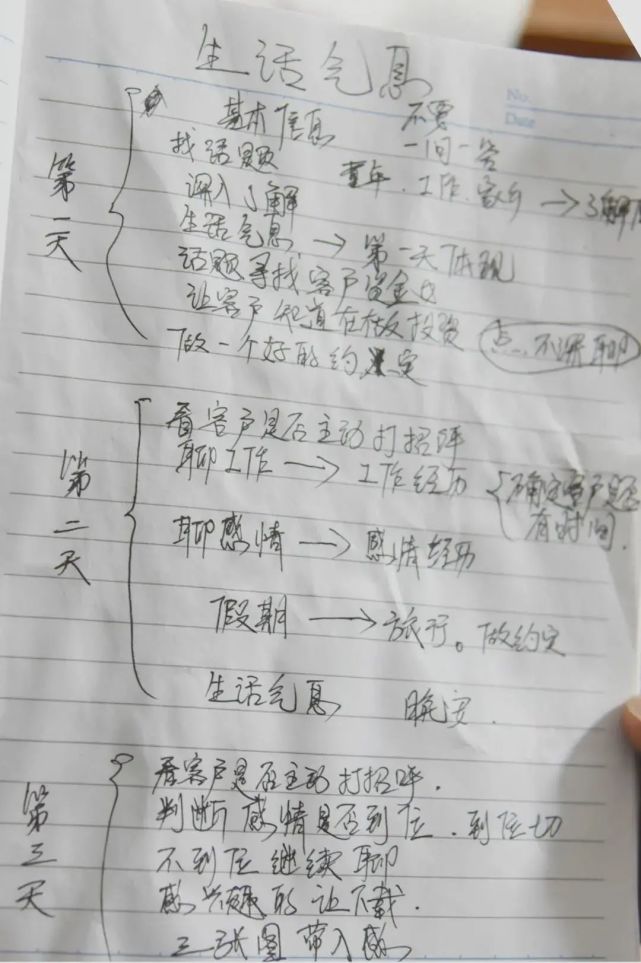 生话气息
No.
Date
基本信息 不要
一问一答
第一天
找话题 童年.工作.家乡 →
深入了解
生活气息 → 第一天体现
话题寻找客户资金
让客户知道在做投资 点.不深聊
做一个好的约定
看客户是否主动打招呼
第二天
聊工作 → 工作经历 { 确定客户是否
有时间.
聊感情 → 感情经历
假期 → 旅行。做约定
生话气息 晚安.
第三天
看客户是否主动打招呼.
判断感情是否到位.到位切
不到位继续聊
感兴趣的让下载.
三张图带入感